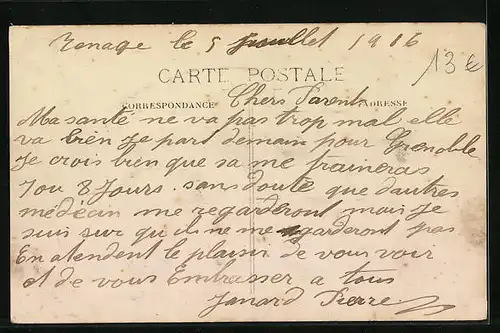 Renage le 5 Juillet 1916
13 €
CARTE POSTALE
CORRESPONDANCE
ADRESSE
Chers Parents
Ma santé ne va pas trop mal elle
va bien je part demain pour Grenoble
Je crois bien que sa me traineras
7 ou 8 Jours. sans doute que dautres
médecin me regarderont mais je
suis sur qu ils ne me garderont pas
En atendent le plaisir de vous voir
et de vous Embrasser a tous
Janard Pierre